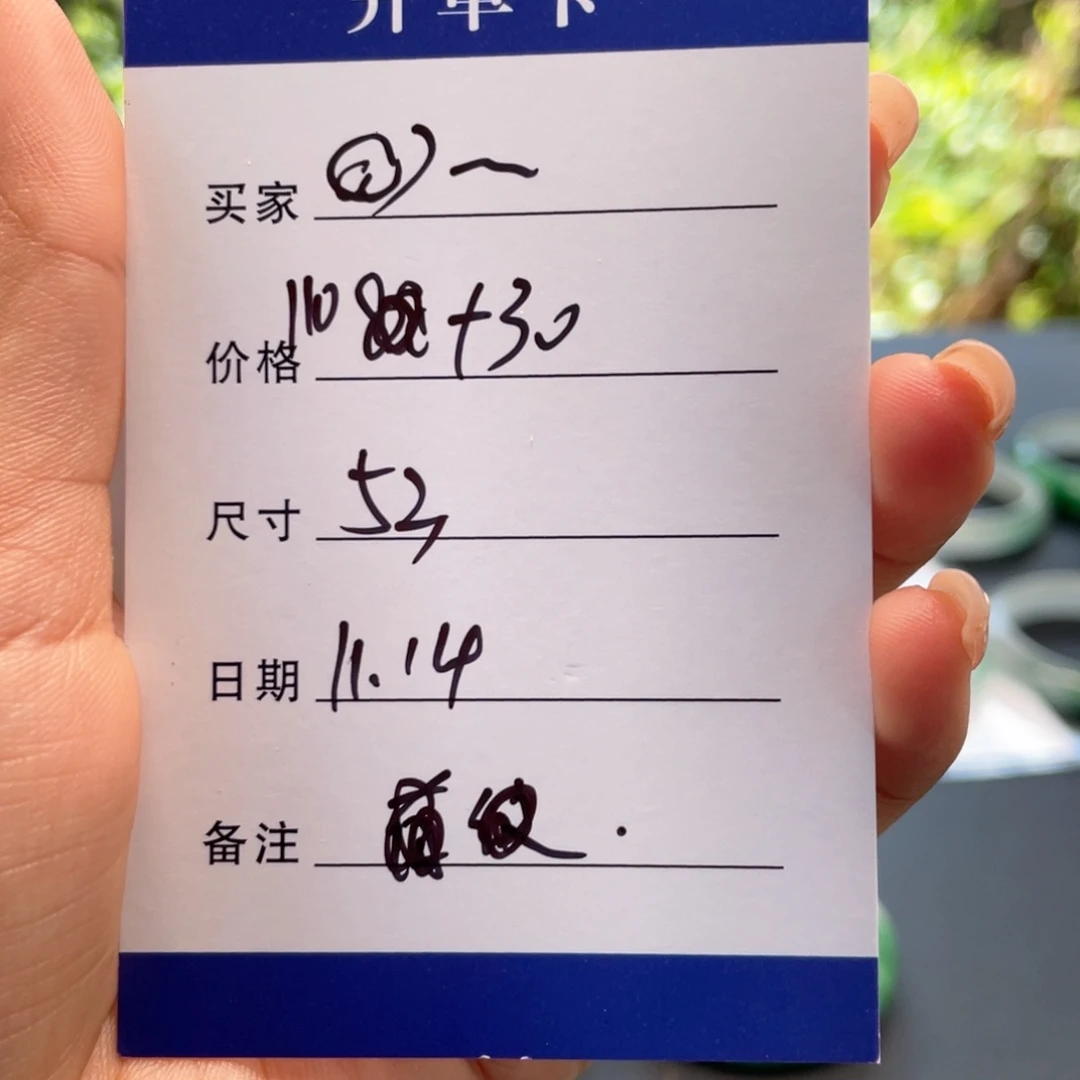 开单卡
买家
价格 110 +30
尺寸 52
日期 11.14
备注